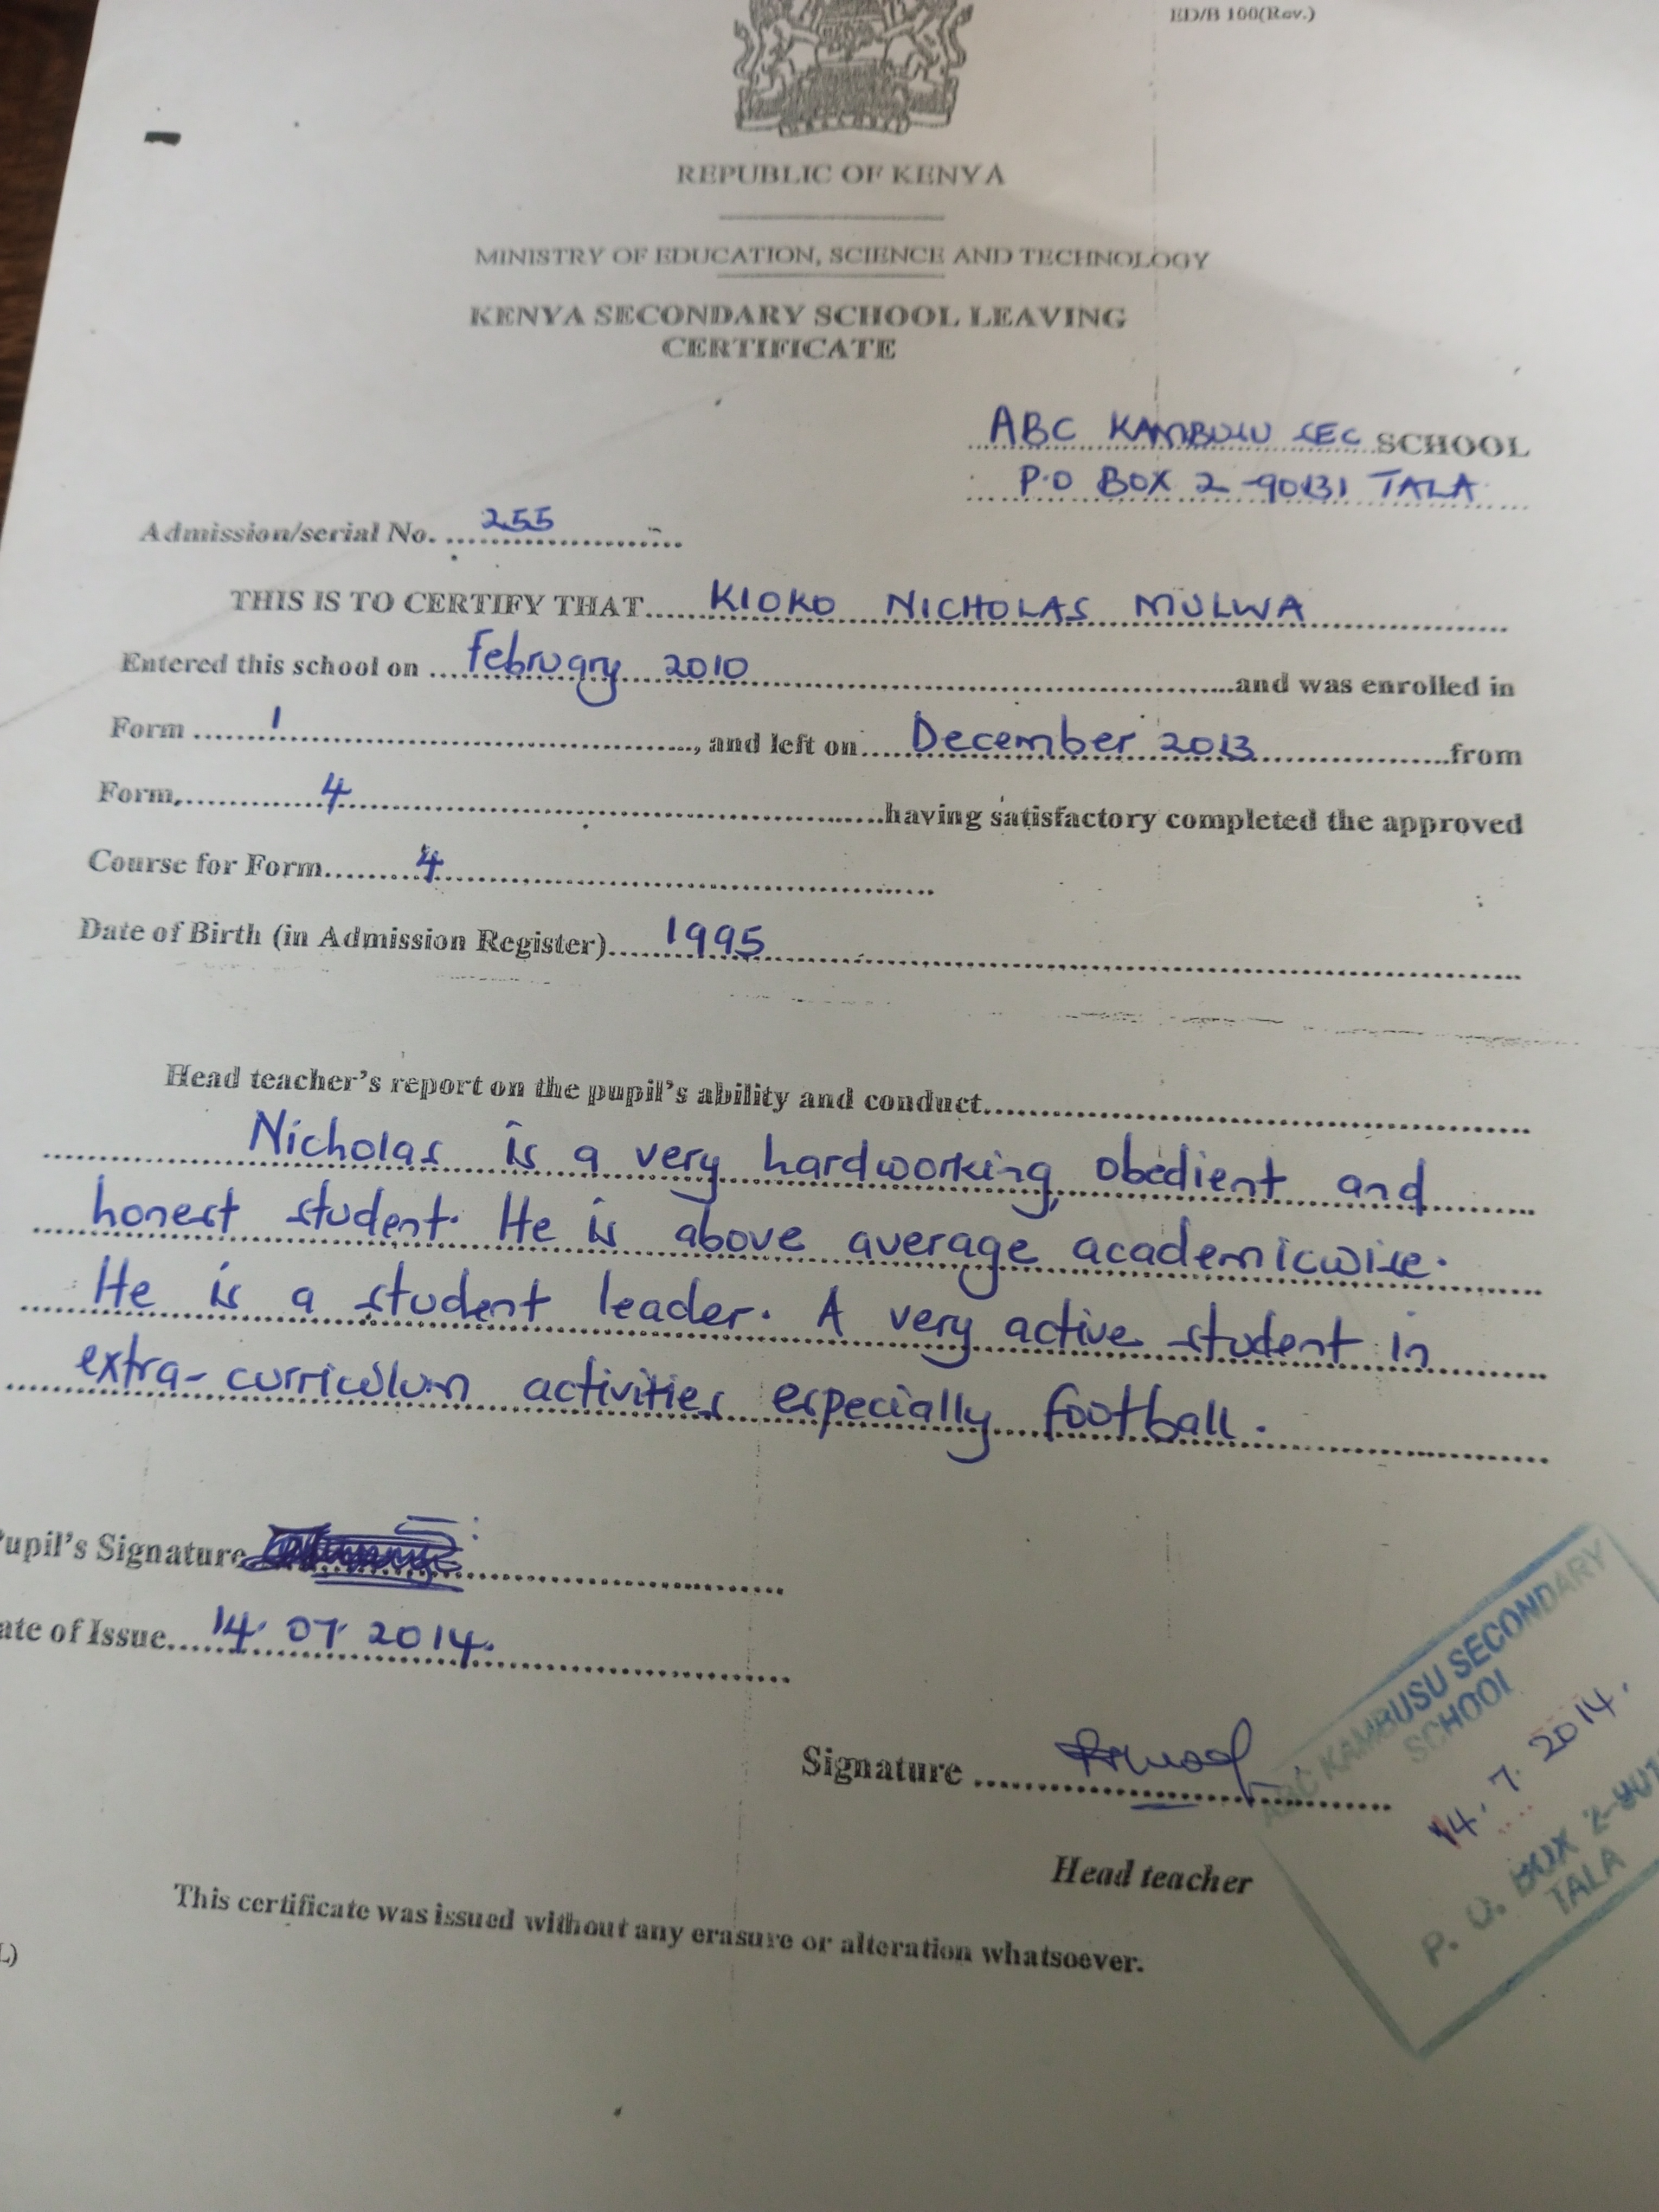 ED/B 100(Rev.)
REPUBLIC OF KENYA
MINISTRY OF EDUCATION, SCIENCE AND TECHNOLOGY
KENYA SECONDARY SCHOOL LEAVING
CERTIFICATE
ABC KAMBUSU SEC SCHOOL
P.O BOX 2-90131 TALA
Admission/serial No. 255
THIS IS TO CERTIFY THAT KIOKO NICHOLAS MULWA
Entered this school on February 2010 and was enrolled in
Form 1, and left on December 2013 from
Form, 4 having satisfactory completed the approved
Course for Form 4
Date of Birth (in Admission Register) 1995
Head teacher's report on the pupil's ability and conduct
Nicholas is a very hardworking, obedient and
honest student. He is above average academicwise.
He is a student leader. A very active student in
extra-curriculum activities especially football.
Pupil's Signature
ate of Issue 14.07.2014.
Signature
Head teacher
ABC KAMBUSU SECONDARY
SCHOOL
14.7.2014.
P. O. BOX 2-901
TALA
This certificate was issued without any erasure or alteration whatsoever.
L)